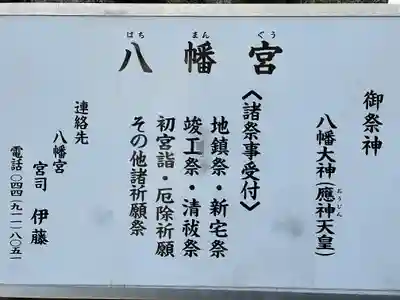 はち まん ぐう
八幡宮
御祭神
八幡大神(應神天皇)
おうじん
〈諸祭事受付〉
地鎮祭・新宅祭
竣工祭・清祓祭
初宮詣・厄除祈願
その他諸祈願祭
連絡先
八幡宮
宮司 伊藤
電話〇四四(九一一)八〇五一